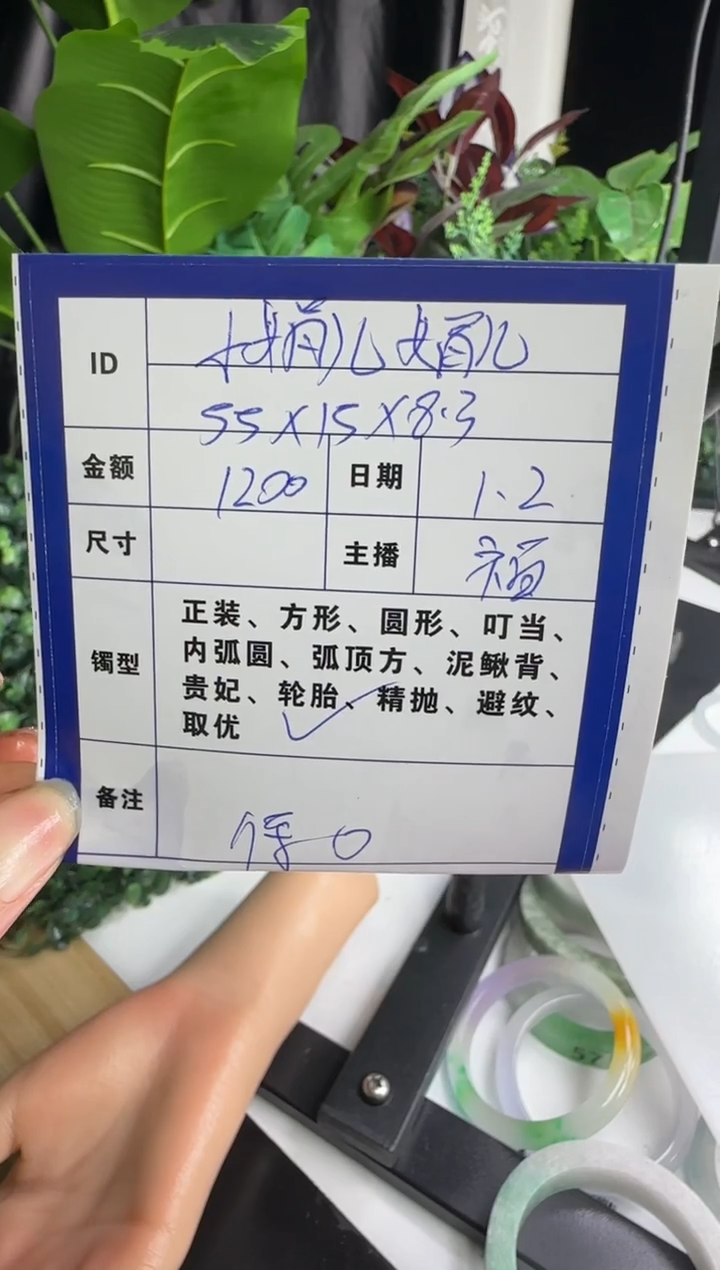 ID 娟儿娟儿
55×15×8.3
金额 1200 日期 1.2
尺寸 主播 福
镯型 正装、方形、圆形、叮当、
内弧圆、弧顶方、泥鳅背、
贵妃、轮胎、精抛、避纹、
取优
备注
57